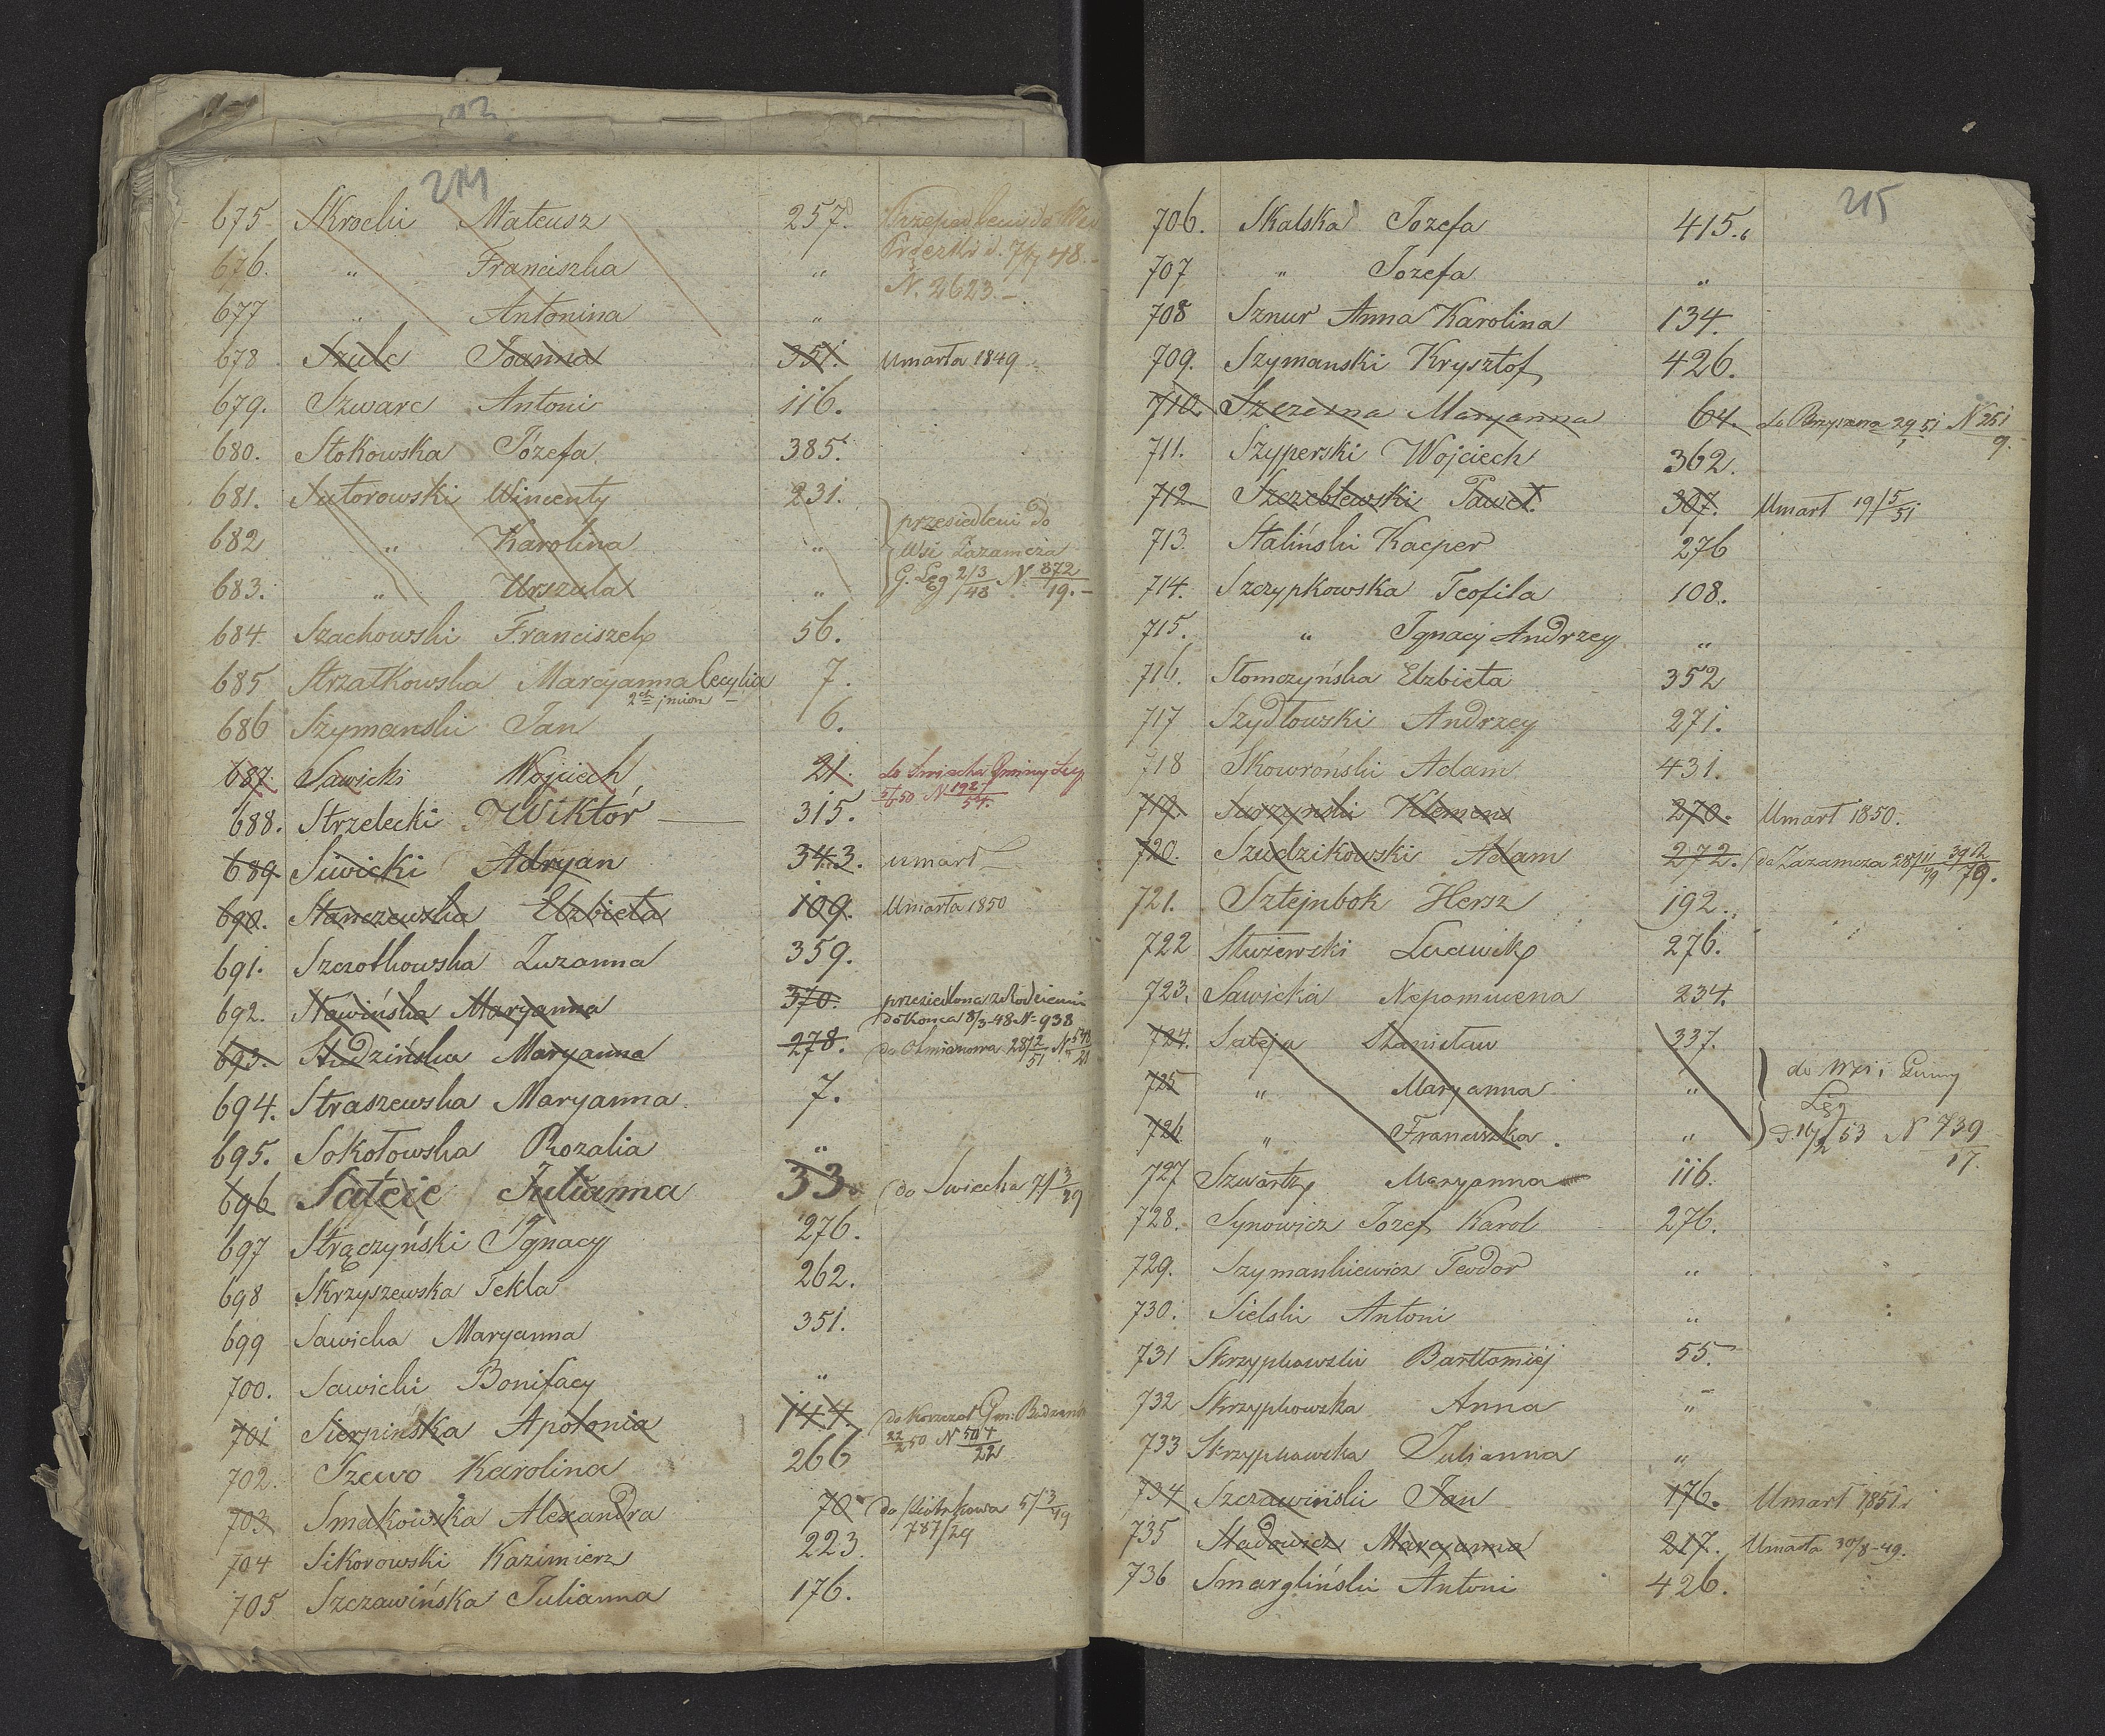 214
675 Skrocki Mateusz 257.
676. " Franciszka "
N. 2623.
677 " Antonina "
678 Szulc Joanna 351. umarła 1849
679. Szwarc Antoni 116.
680. Stokowska Józefa 385.
681. Sutorowski Wincenty 231.
przesiedleni do
682 " Karolina " Wsi Zazamcza
683. " Urszula " G. Łęg 2/3 48 N. 872/19.
684 Szachowski Franciszek 56.
685 Strzałkowska Maryanna Cecylia 7.
2ch imion
686 Szymanski Jan 6.
687. Sawicki Wojciech 21. do Smiecha Gminy Łęg
5/6 50 N 1927/54.
688. Strzelecki Wiktór 315.
689 Siwicki Adryan 343. umarł
690. Stanczewska Elzbieta 109. Umarła 1850
691. Szczotkowska Zuzanna 359.
692. Stawińska Maryanna 370. przesiedlona
8/3-48 N 938
693. Studzińska Maryanna 278. 28/2 51
694. Straszewska Maryanna 7.
695. Sokołowska Rozalia "
696 Sateie Julianna 33. do Swiecha 7/3 49
697 Strączyński Ignacy 276.
698 Skrzyszewska Tekla 262.
699 Sawicka Maryanna 351.
700. Sawicki Bonifacy "
701 Sierpińska Apolonia 144. do Gm:
22/2 50 N 504/22
702. Szewo Karolina 266
703 Smakowska Alexandra 70 do Piotrkowa 5/3 49
787/29
704 Sikorowski Kazimierz 223.
705 Szczawińska Julianna 176.
215
706. Skalska Jozefa 415.
707 " Jozefa "
708 Sznur Anna Karolina 134.
709. Szymanski Krysztof 426.
710. Szczesna Maryanna 64. do 29/1 51 N 251/9.
711. Szyperski Wojciech 362.
712 Szczeblewski Paweł 307. Umarł 19/5 51
713. Staliński Kacper 276
714. Szczypkowska Teofila 108.
715. " Ignacy Andrzey "
716. Słomczyńska Elzbieta 352
717 Szydłowski Andrzey 271.
718 Skowroński Adam 431.
719. Suszynski Klemens 270. Umarł 1850.
720. Szudzikowski Adam 272. do Zazamcza 28/11 49 3912/79.
721. Sztejnbok Hersz 192.
722 Służewski Ludwik 276.
723. Sawicka Nepomucena 234.
724. Sateja Stanisław 337.
725 " Maryanna " do Wsi i Gminy
Łęg
726 " Franciszka. " d. 16/2 53 N 739/17.
727 Szwartz Maryanna 116.
728. Synowicz Jozef Karol 276.
729. Szymankiewicz Teodor "
730. Sielski Antoni "
731 Skrzypkowski Bartłomiéj 55.
732 Skrzypkowska Anna "
733 Skrzypkowska Julianna "
734 Szczawiński Jan 176. Umarł 1851.
735 Stadowicz Maryanna 217. Umarła 30/8-49.
736 Smargliński Antoni 426.